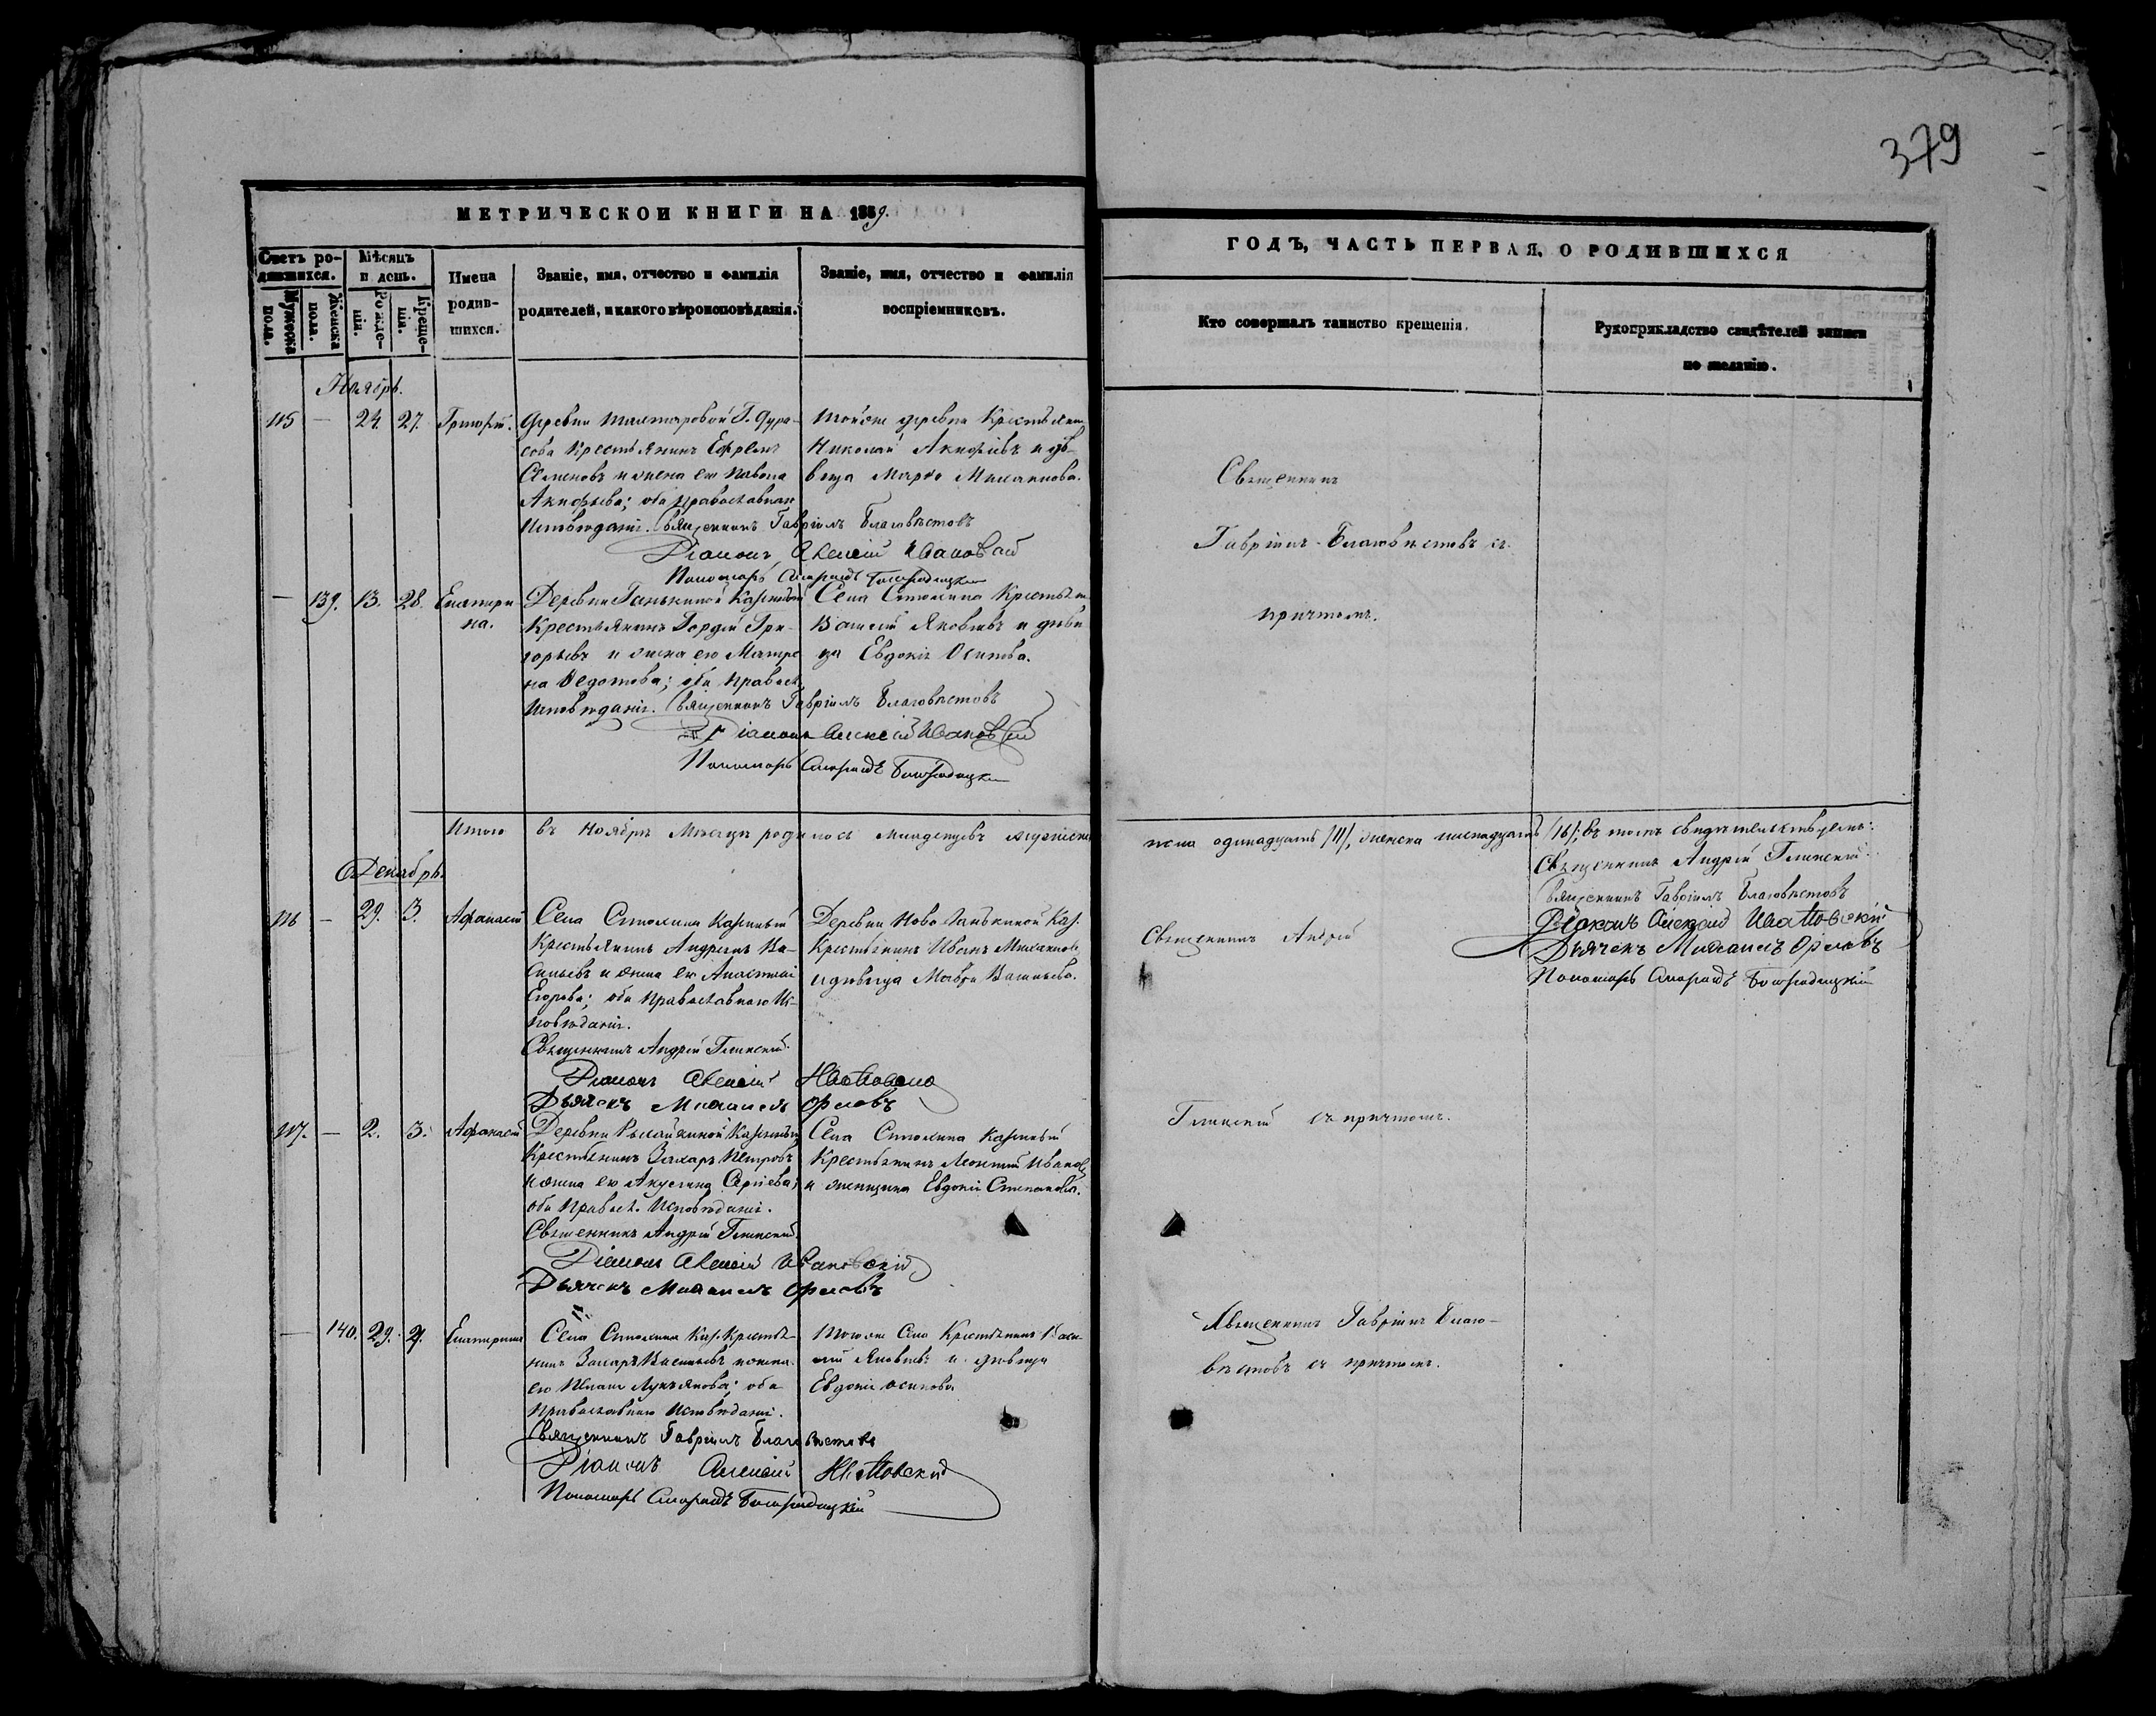 379
МЕТРИЧЕСКОЙ КНИГИ НА 1859.
ГОДЪ, ЧАСТЬ ПЕРВАЯ, О РОДИВШИХСЯ
Счетъ ро-
дившихся.
Мужеска
пола.
Женска
пола.
Мѣсяцъ
и день.
Рожде-
нія.
Креще-
нія.
Имена
родив-
шихся.
Званіе, имя, отчество и фамилія
родителей, и какого вѣроисповѣданія.
Званіе, имя, отчество и фамилія
воспріемниковъ.
Кто совершалъ таинство крещенія.
Рукоприкладство свидѣтелей записи
по желанію.
Ноябрь.
115 — 24. 27. Григорій.
Деревни Г. Дура-
сова Крестьянинъ Ефремъ
Семеновъ и жена его
Акифьева; оба православнаго
Исповѣданія. Священникъ Гавріилъ Благовѣстовъ
Діаконъ Алексій Ивановскій
Пономарь Богородицкій
Тойже деревни Крестьянинъ
Николай Акифіевъ и дѣ-
вица Марѳа Михаилова.
Священникъ
Гавріилъ Благовѣстовъ съ
причтомъ.
— 139. 13. 28. Екатери
на.
Деревни Ганькиной Казенный
Крестьянинъ Гордѣй Гри-
горьевъ и жена его Матре
на Ѳедотова; оба правосл.
Исповѣданія. Священникъ Гавріилъ Благовѣстовъ
Діаконъ Алексій Ивановскій
Пономарь Богородицкій
Села Стюхина Крестьянинъ
Василій Яковлевъ и дѣви
ца Евдокія Осипова.
Итого въ Ноябрѣ Мѣсяцѣ родилось Младенцевъ мужеска
пола одинадцать /11/, женска шеснадцать /16/; въ томъ свидѣтельствуемъ:
Священникъ Андрей Глинскій
Священникъ Гавріилъ Благовѣстовъ
Діаконъ Алексій Ивановскій
Дьячекъ Михаилъ Орловъ
Пономарь Богородицкій
Декабрь.
116 — 29. 3. Афанасій
Села Стюхина Казенный
Крестьянинъ Андреянъ Ва-
сильевъ и жена его Анастасія
Егорова; оба православнаго Ис-
повѣданія.
Священникъ Андрей Глинскій
Діаконъ Алексій Ивановскій
Дьячекъ Михаилъ Орловъ
Деревни Ново Ганькиной Каз.
Крестьянинъ Иванъ Михаиловъ
и дѣвица Мавра Васильева.
Священникъ Андрей
Глинскій съ причтомъ.
117. — 2. 3. Афанасій
Деревни Казенный
Крестьянинъ Захаръ Петровъ
и жена его Акулина Сергіева;
оба правосл. Исповѣданія.
Священникъ Андрей Глинскій
Діаконъ Алексій Ивановскій
Дьячекъ Михаилъ Орловъ
Села Стюхина Казенный
Крестьянинъ Леонтій Ивановъ
и женщина Евдокія Степанова.
— 140. 29. 4. Екатерина
Села Стюхина Каз. Крестья-
нинъ Захаръ Васильевъ и жена
его Лукьянова; оба
православнаго Исповѣданія.
Священникъ Гавріилъ Благовѣстовъ
Діаконъ Алексій Ивановскій
Пономарь Богородицкій
Тогоже Села Крестьянинъ Васи-
лій Яковлевъ и дѣвица
Евдокія Осипова
Священникъ Гавріилъ Благо-
вѣстовъ съ причтомъ.